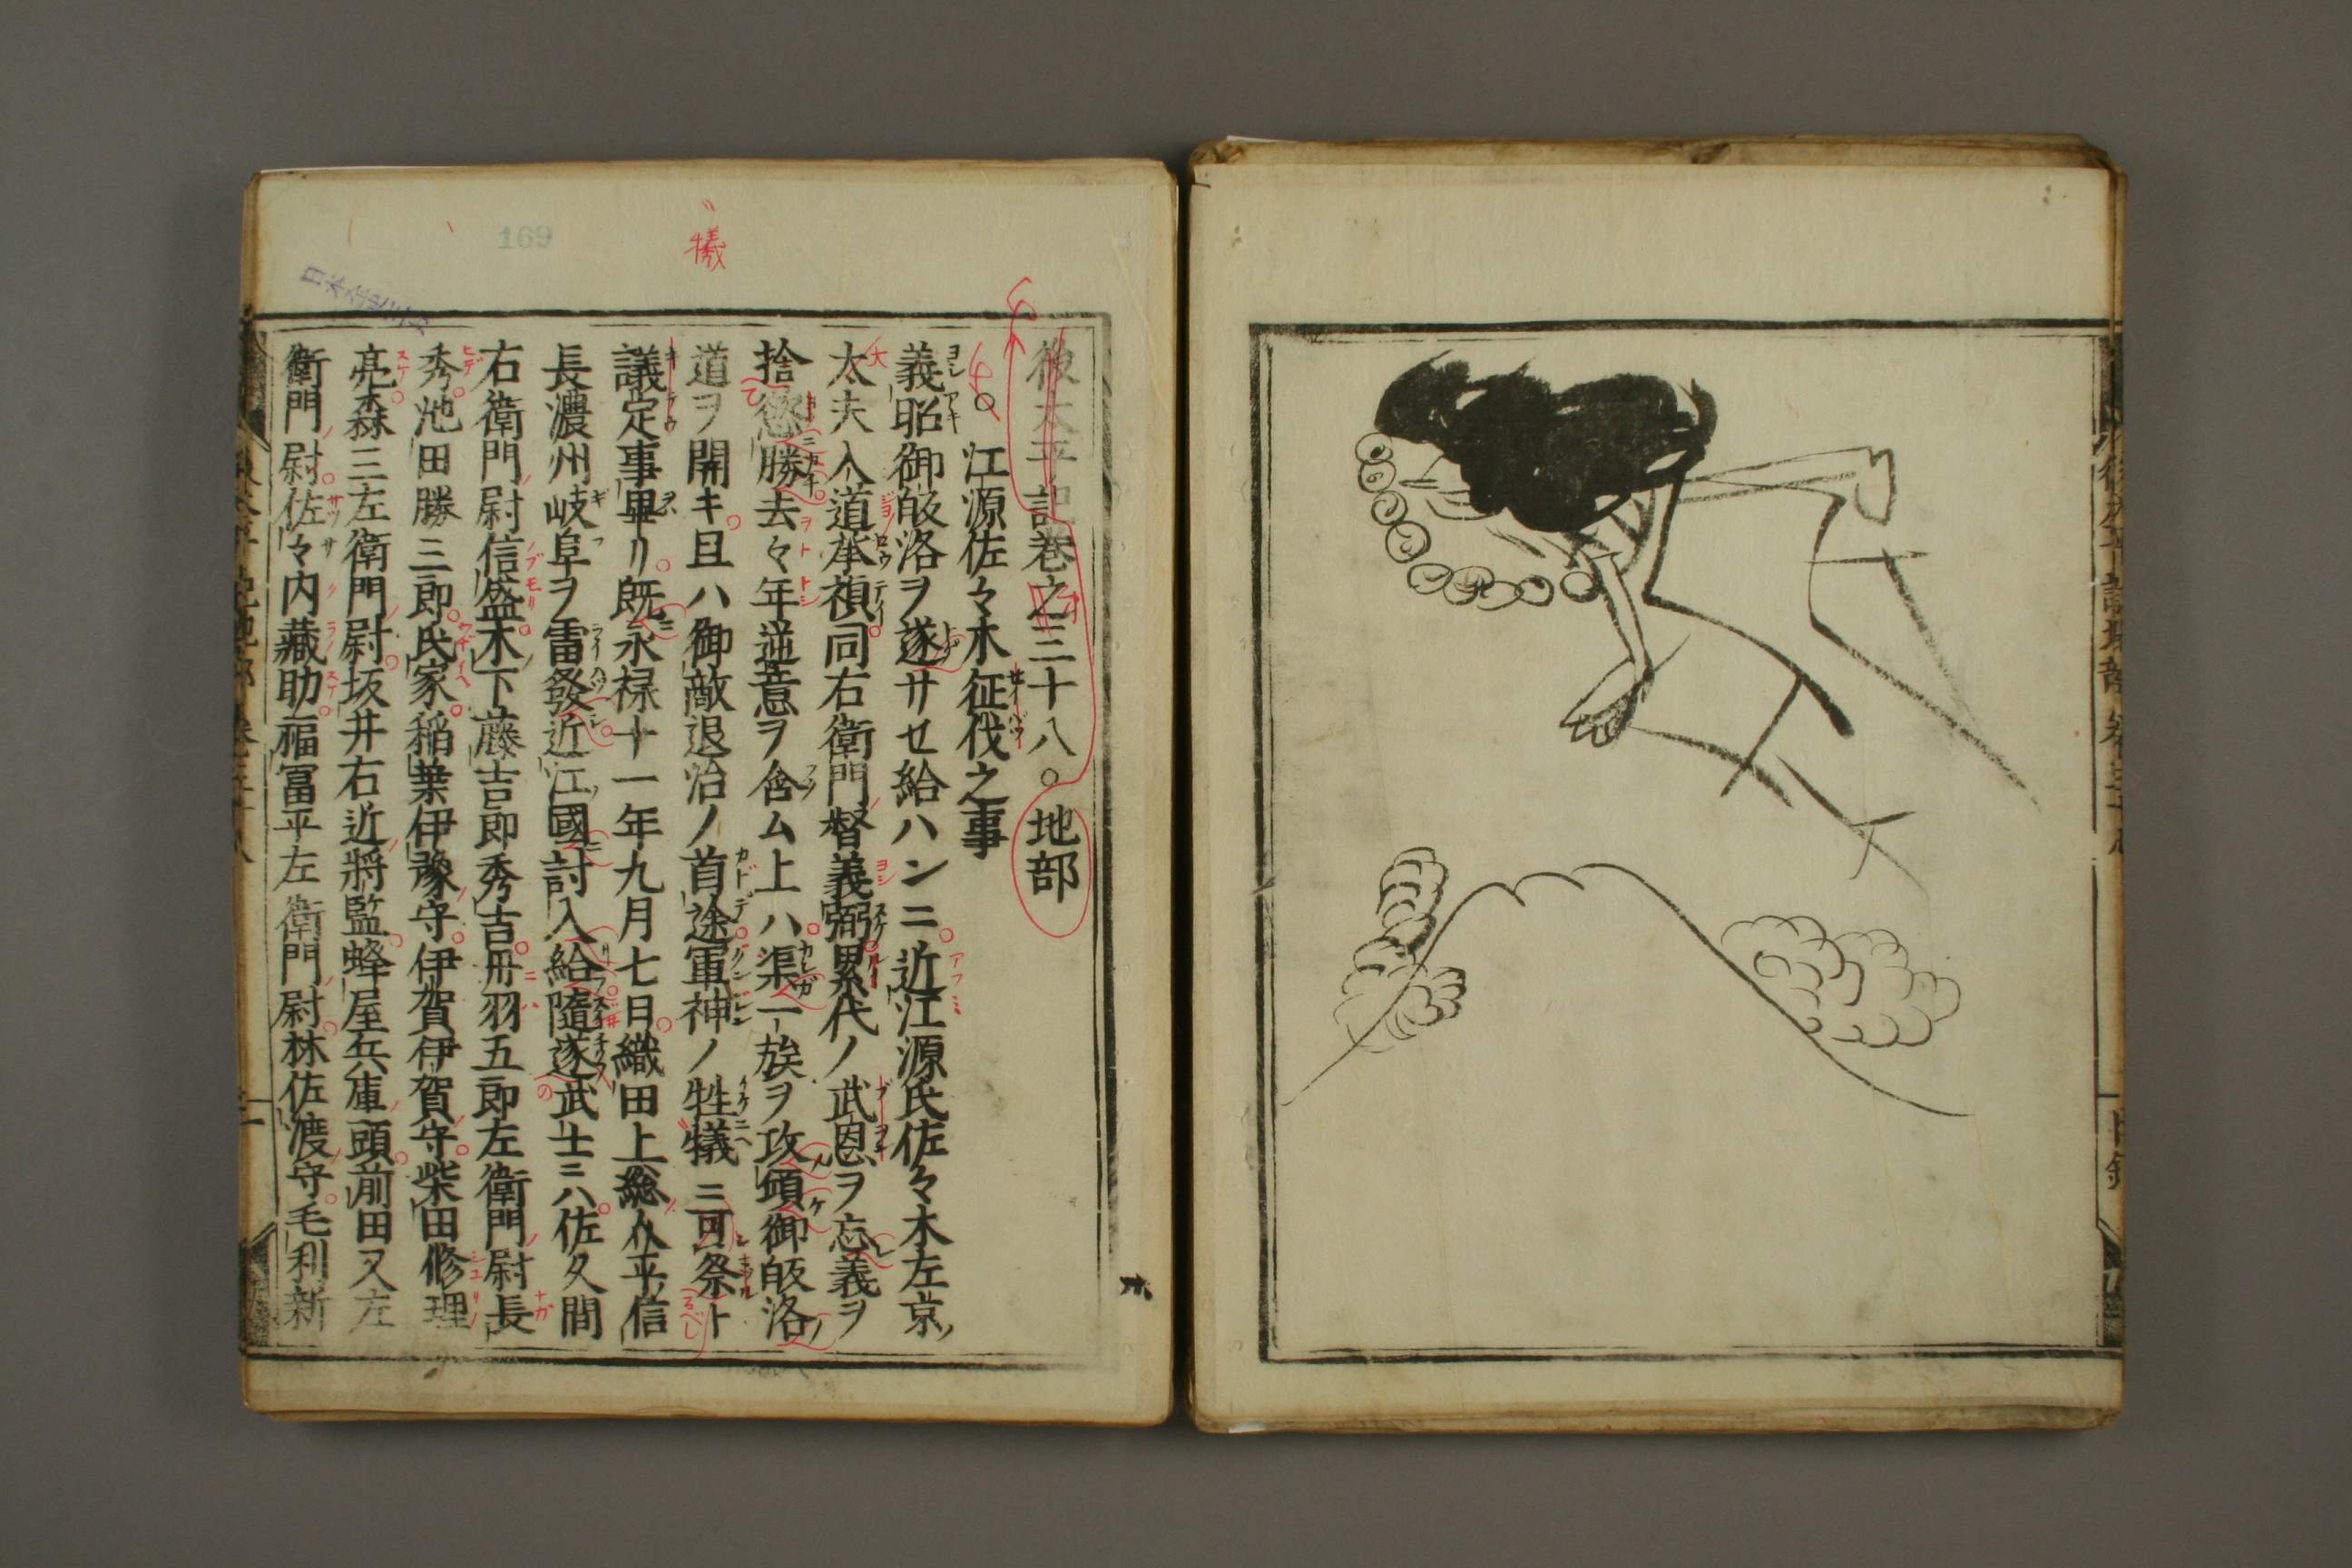 後太平記巻之三十八。地部
江源佐々木征伐之事
義昭御皈洛ヲ遂サセ給ハンニ近江源氏佐々木左京ノ
太夫入道承禎同右衛門督義弼累代ノ武恩ヲ忘義ヲ
捨慾勝去々年逆意ヲ含ム上ハ渠一族ヲ攻頒御皈洛ノ
道ヲ開キ且ハ御敵退治ノ首途軍神ノ牲犠ニ可祭ト
議定事畢リ既永禄十一年九月七日織田上総介平信
長濃州岐阜ヲ雷發近江國討入給隨遂武士ニハ佐久間
右衛門尉信盛木下藤吉郎秀吉丹羽五郎左衛門尉長
秀池田勝三郎氏家稲葉伊豫守伊賀伊賀守柴田修理
亮森三左衛門尉坂井右近將監蜂屋兵庫頭前田又左
衛門尉佐々内藏助福冨平左衛門尉林佐渡守毛利新
犠
169